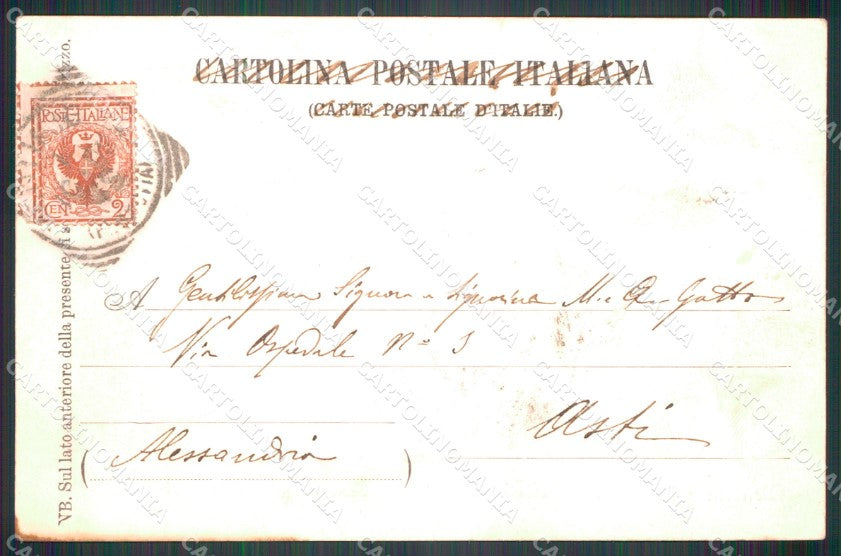 CARTOLINA POSTALE ITALIANA
(CARTE POSTALE D'ITALIE.)
POSTE ITALIANE
CEN 2
A Signora e Signorina M. e Gatto
Via Ospedale Nº
Asti
(Alessandria)
NB. Sul lato anteriore della presente si
CARTOLINOMANIA